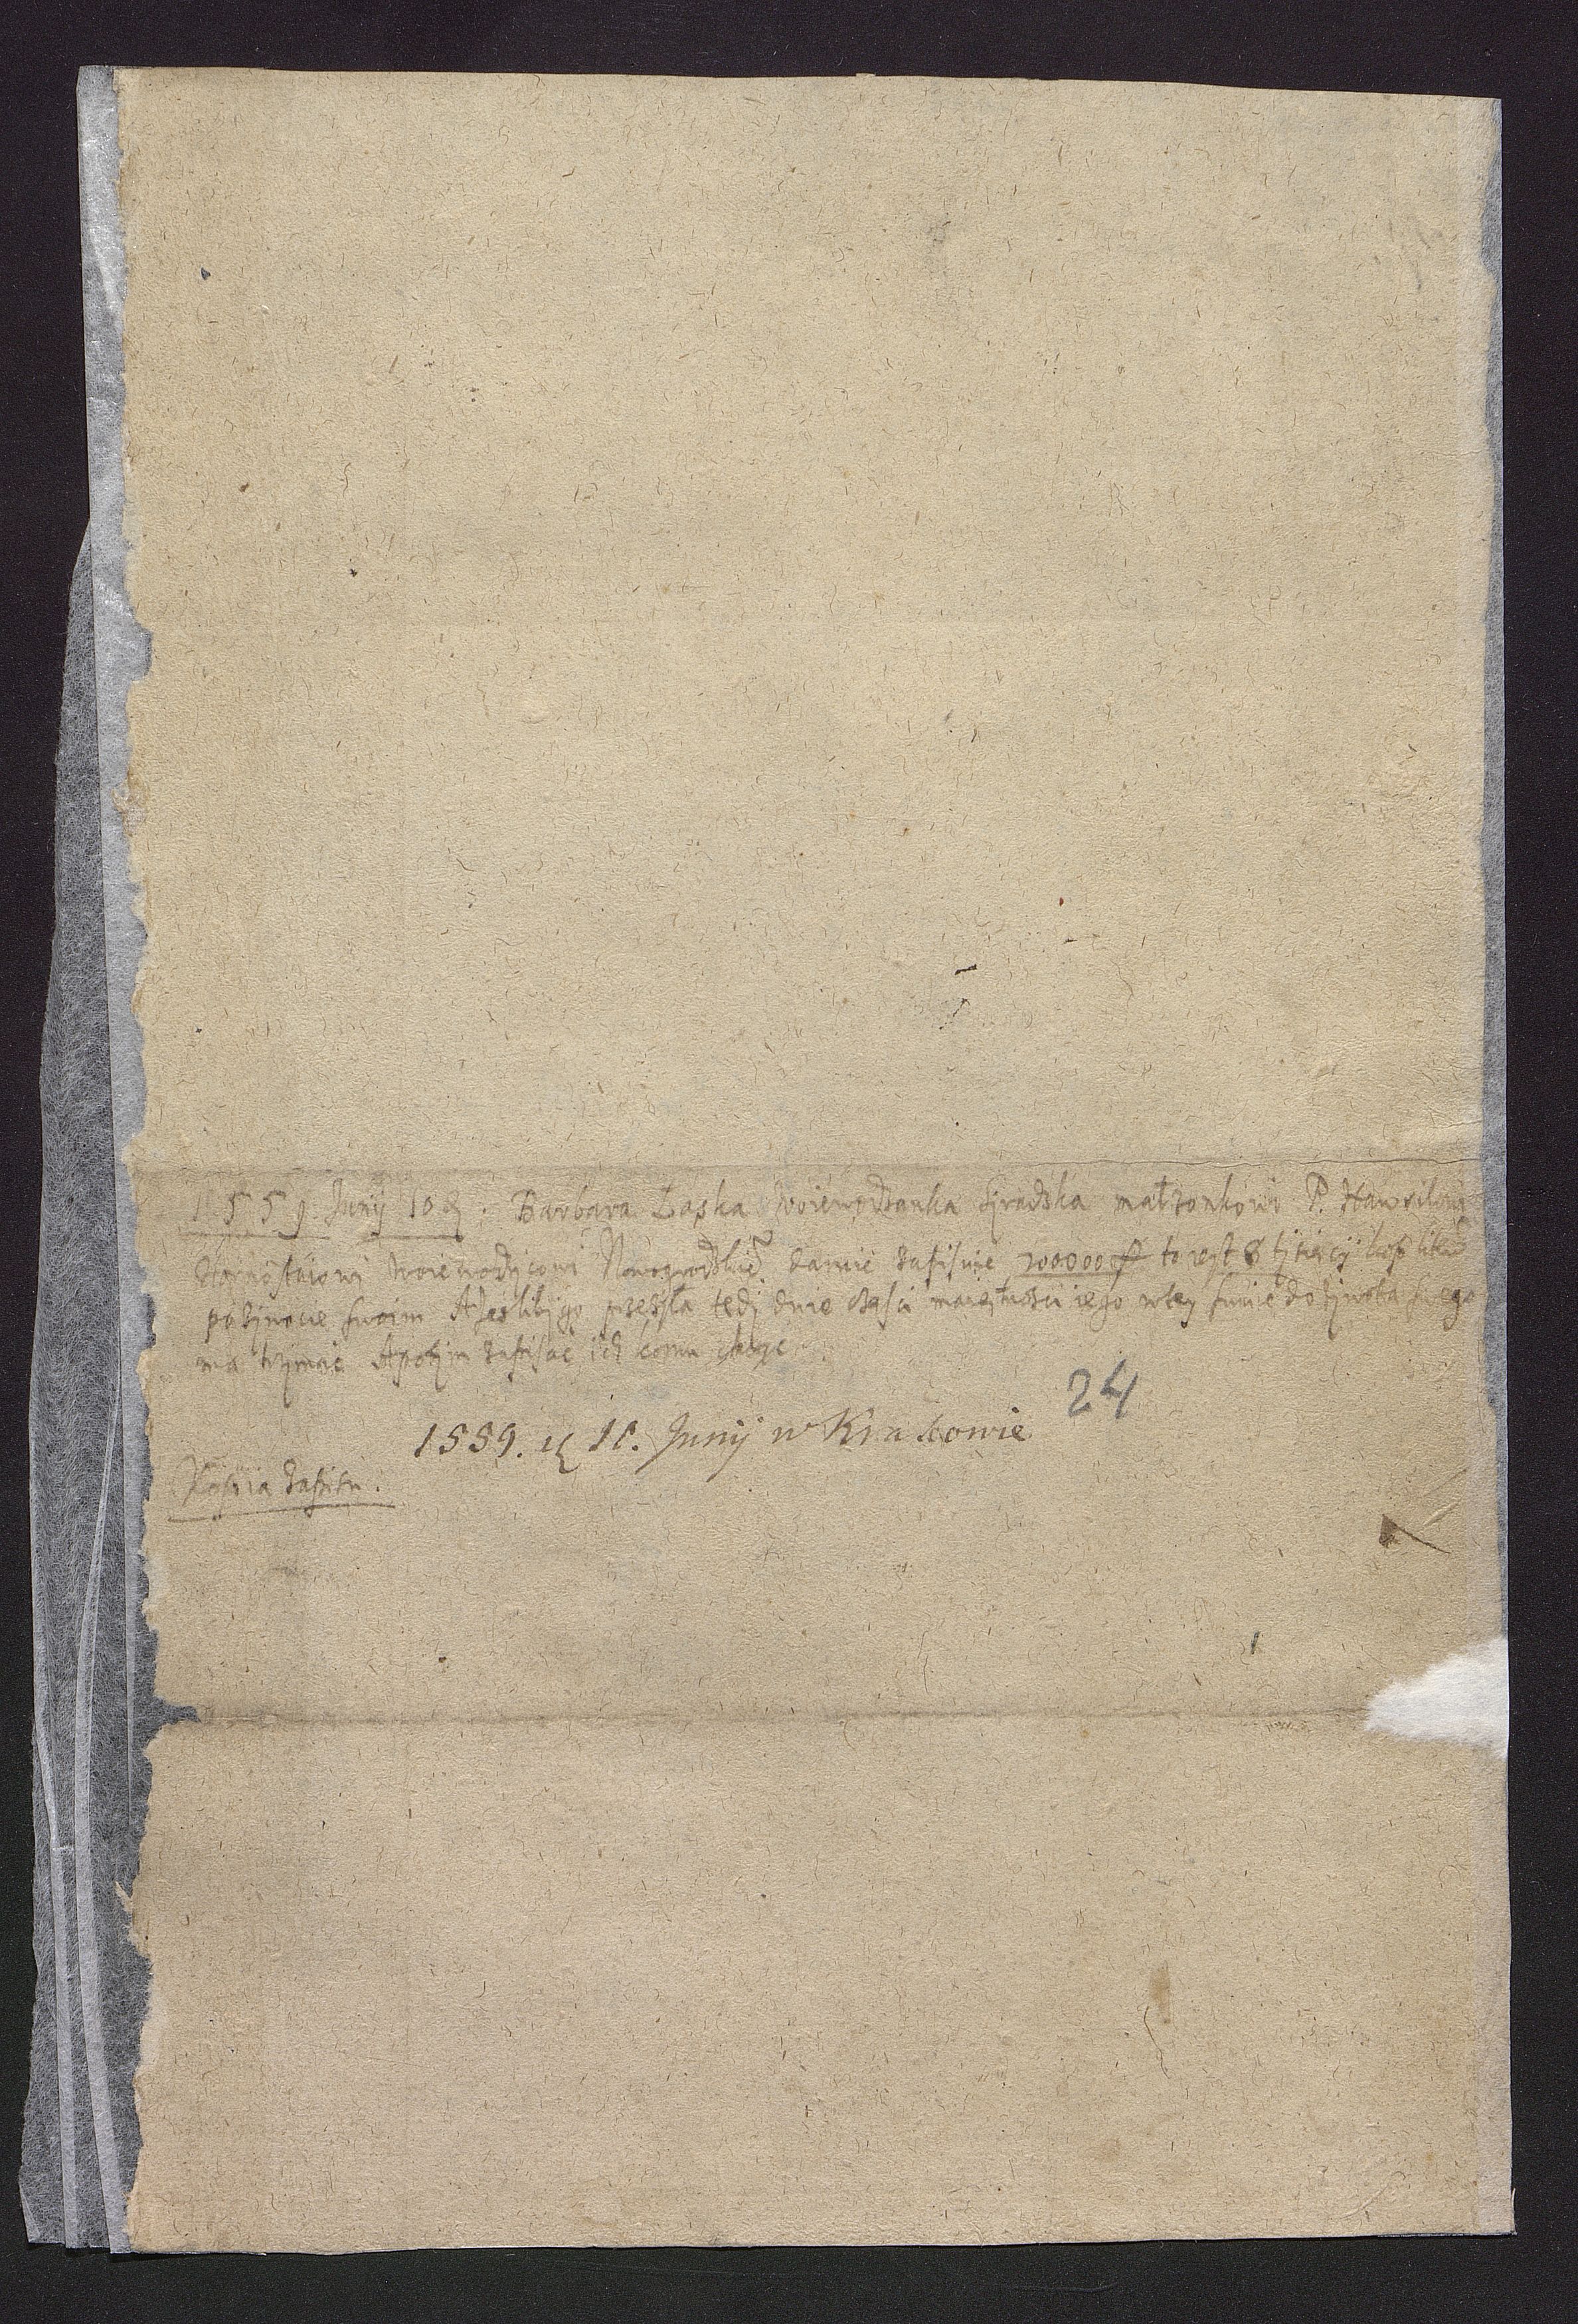 1559 Junij 10 d. Barbara Laska woiewodzanka Siradzka małzonkowi P. Hawrilowi
Hornostaiowi woiewodzicowi Nowogrodzkie° daruie zapisuie 20000 fl to iest 8 tysięcy kop lite°
po zywocie swoim A Jeslibj go przezyła tedj dwie części maiętności iego w tey sumie do zywota swego
ma trzymac A po tym zapisac ich komu chcąc
24
1559. d 10. Junij w Krakowie
Kopia zapisu.